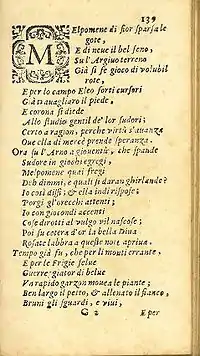 139
MElpomene di fior sparsa le
gote,
E di neue il bel seno,
Su l'Argiuo terreno
Già si fe gioco di volubil
rote,
E per lo campo Eleo forti cursori
Già trauagliaro il piede,
E corona si diede
Allo studio gentil de' lor sudori;
Certo a ragion, perche virtù s'auanza
Oue ella di mercè prende speranza.
Ora su l'Arno a giouentù, che spande
Sudore in giochi egregi,
Melpomene quai fregi
Deh dimmi, e quali si daran ghirlande?
Io così dissi; & ella indi rispose;
Porgi gl'orecchi attenti;
Io con giocondi accenti
Cose dirotti al vulgo vil nascose;
Poi su cetera d'or la bella Diua
Rosate labbra a queste note apriua.
Tempo già fu, che per li monti errante,
E per le Frigie selue
Guerreggiator di belue
Va rapido garzon mouea le piante;
Ben largo il petto, & allenato il fianco,
Bruni gli sguardi, e viui,
G 2 E per